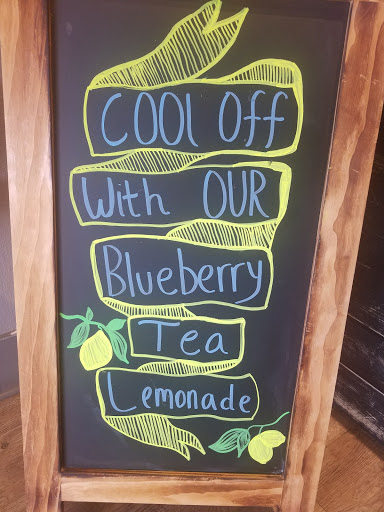 COOl Off
With OUR
Blueberry
Tea
Lemonade